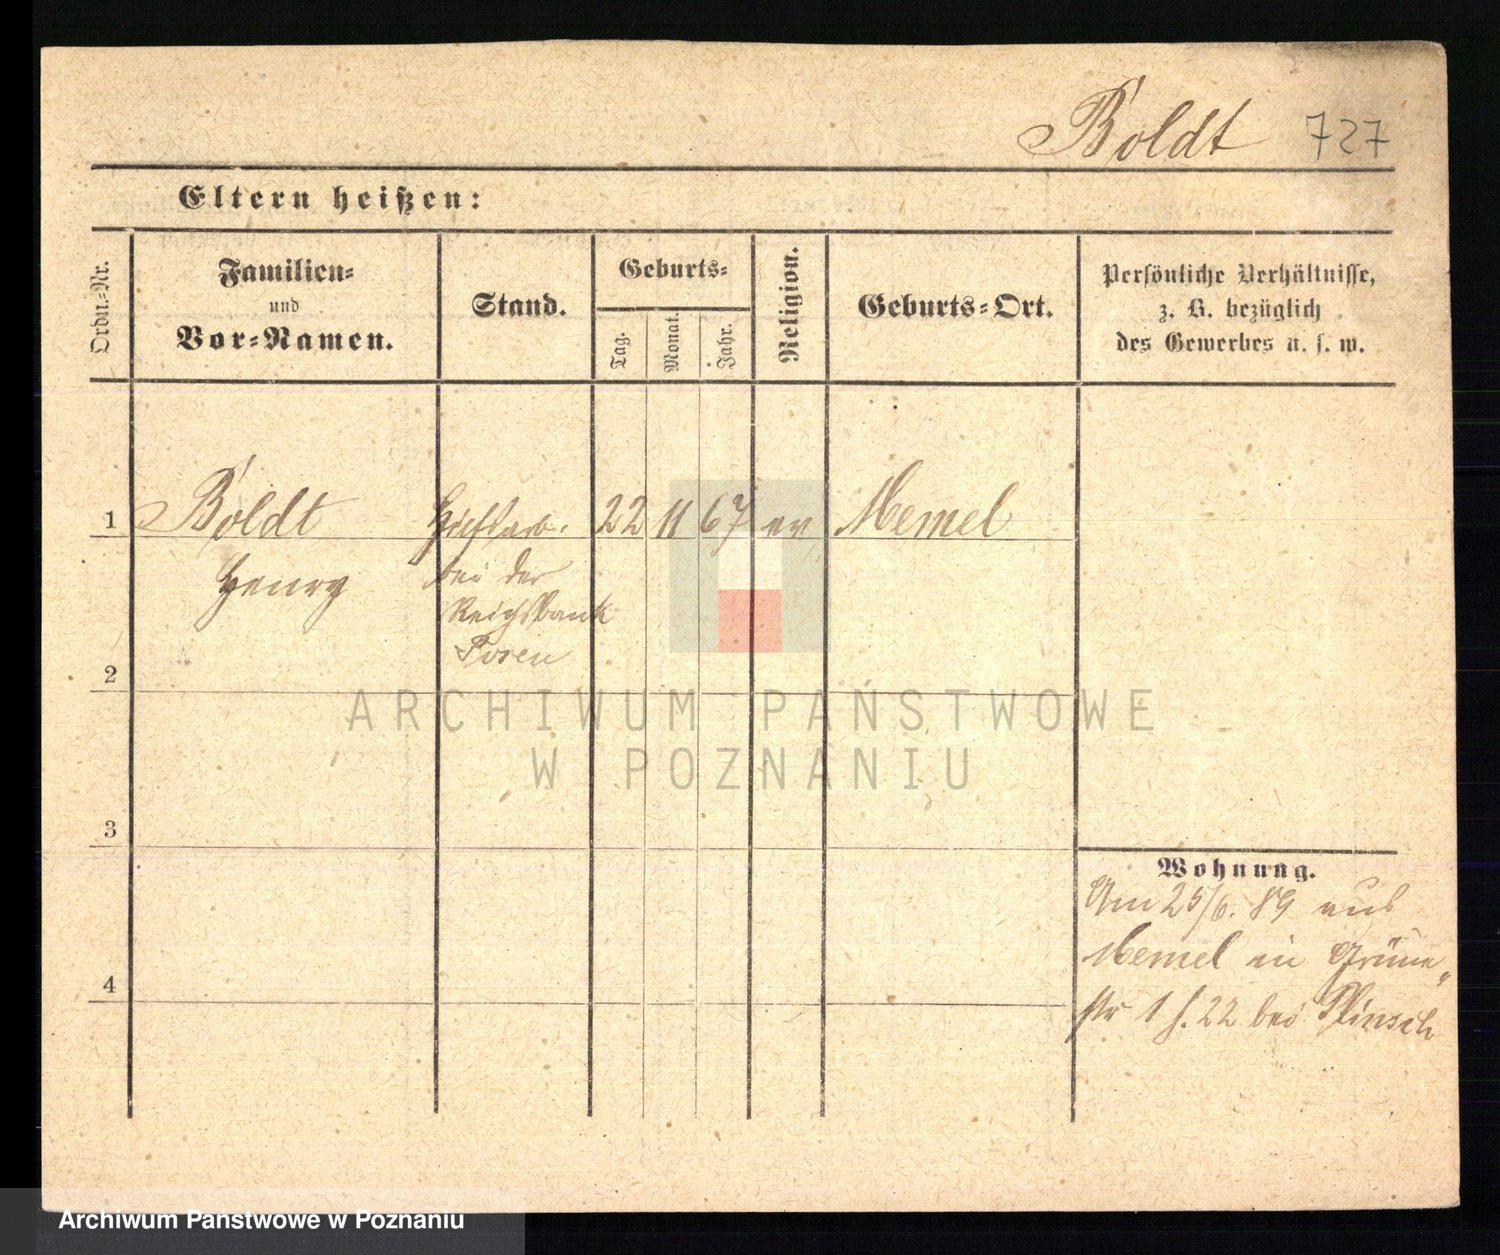 Boldt 727
Eltern heißen:
Ordn.-Nr.
Familien-
und
Vor-Namen.
Stand.
Geburts-
Tag.
Monat.
Jahr.
Religion.
Geburts-Ort.
Persönliche Verhältnisse,
z. B. bezüglich
des Gewerbes u. s. w.
1 Boldt Hilfsarb. 22 11 67 ev Memel
Henry bei der
Reichsbank
Posen
2
3
4
Wohnung.
Am 25/6. 89 aus
Memel in Grüne
str 1 b. 22 bei Plinsch
ARCHIWUM PAŃSTWOWE
W POZNANIU
Archiwum Państwowe w Poznaniu